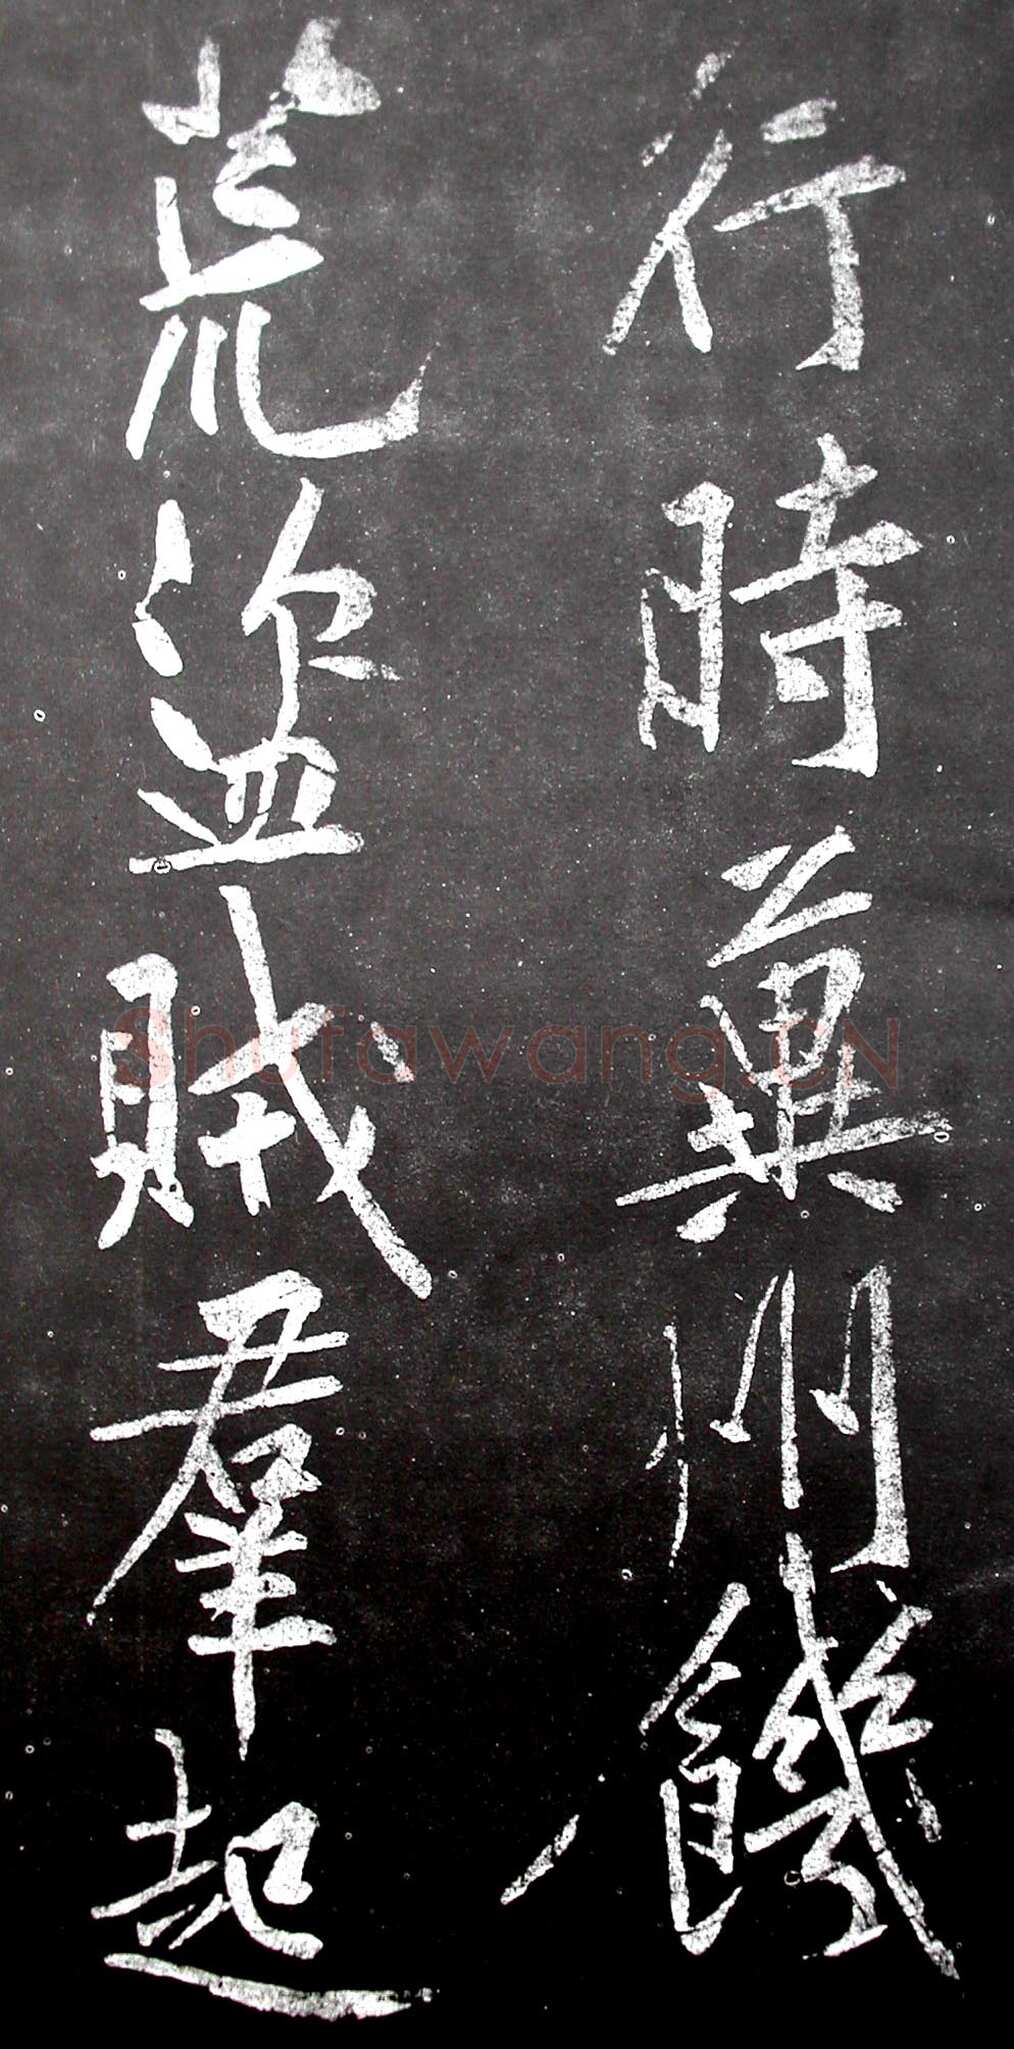 行時冀州饑
荒盜賊羣起
Shufawang.CN